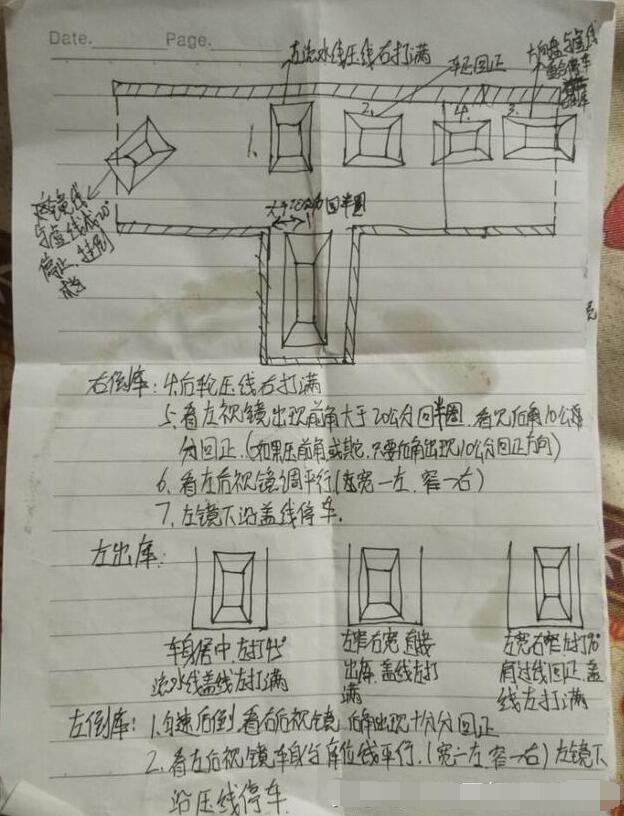 Date. Page.
左流水线压线右打满
车还回正
方向盘与虚线
1.
2.
4.
3.
与虚线成
停止
大于20公分回半圈
右倒库:4.后轮压线右打满
5.看左视镜出现前角大于20公分回半圈.看见后角10公
分回正.(如果压前角或其它.只要后角出现10公分回正方向)
6.看左后视镜调平行(宽一左.窄一右)
7.左镜下沿盖线停车.
左出库:
车身居中.左打45°
流水线盖线左打满
左窄右宽.直接
出库.盖线左打
满
左宽右窄左打90°
有过线回正.盖
线左打满
左倒库:1.匀速后倒.看右后视镜.后角出现十公分回正
2.看左后视镜车身与库位线平行.(宽一左窄一右)左镜下
沿压线停车.